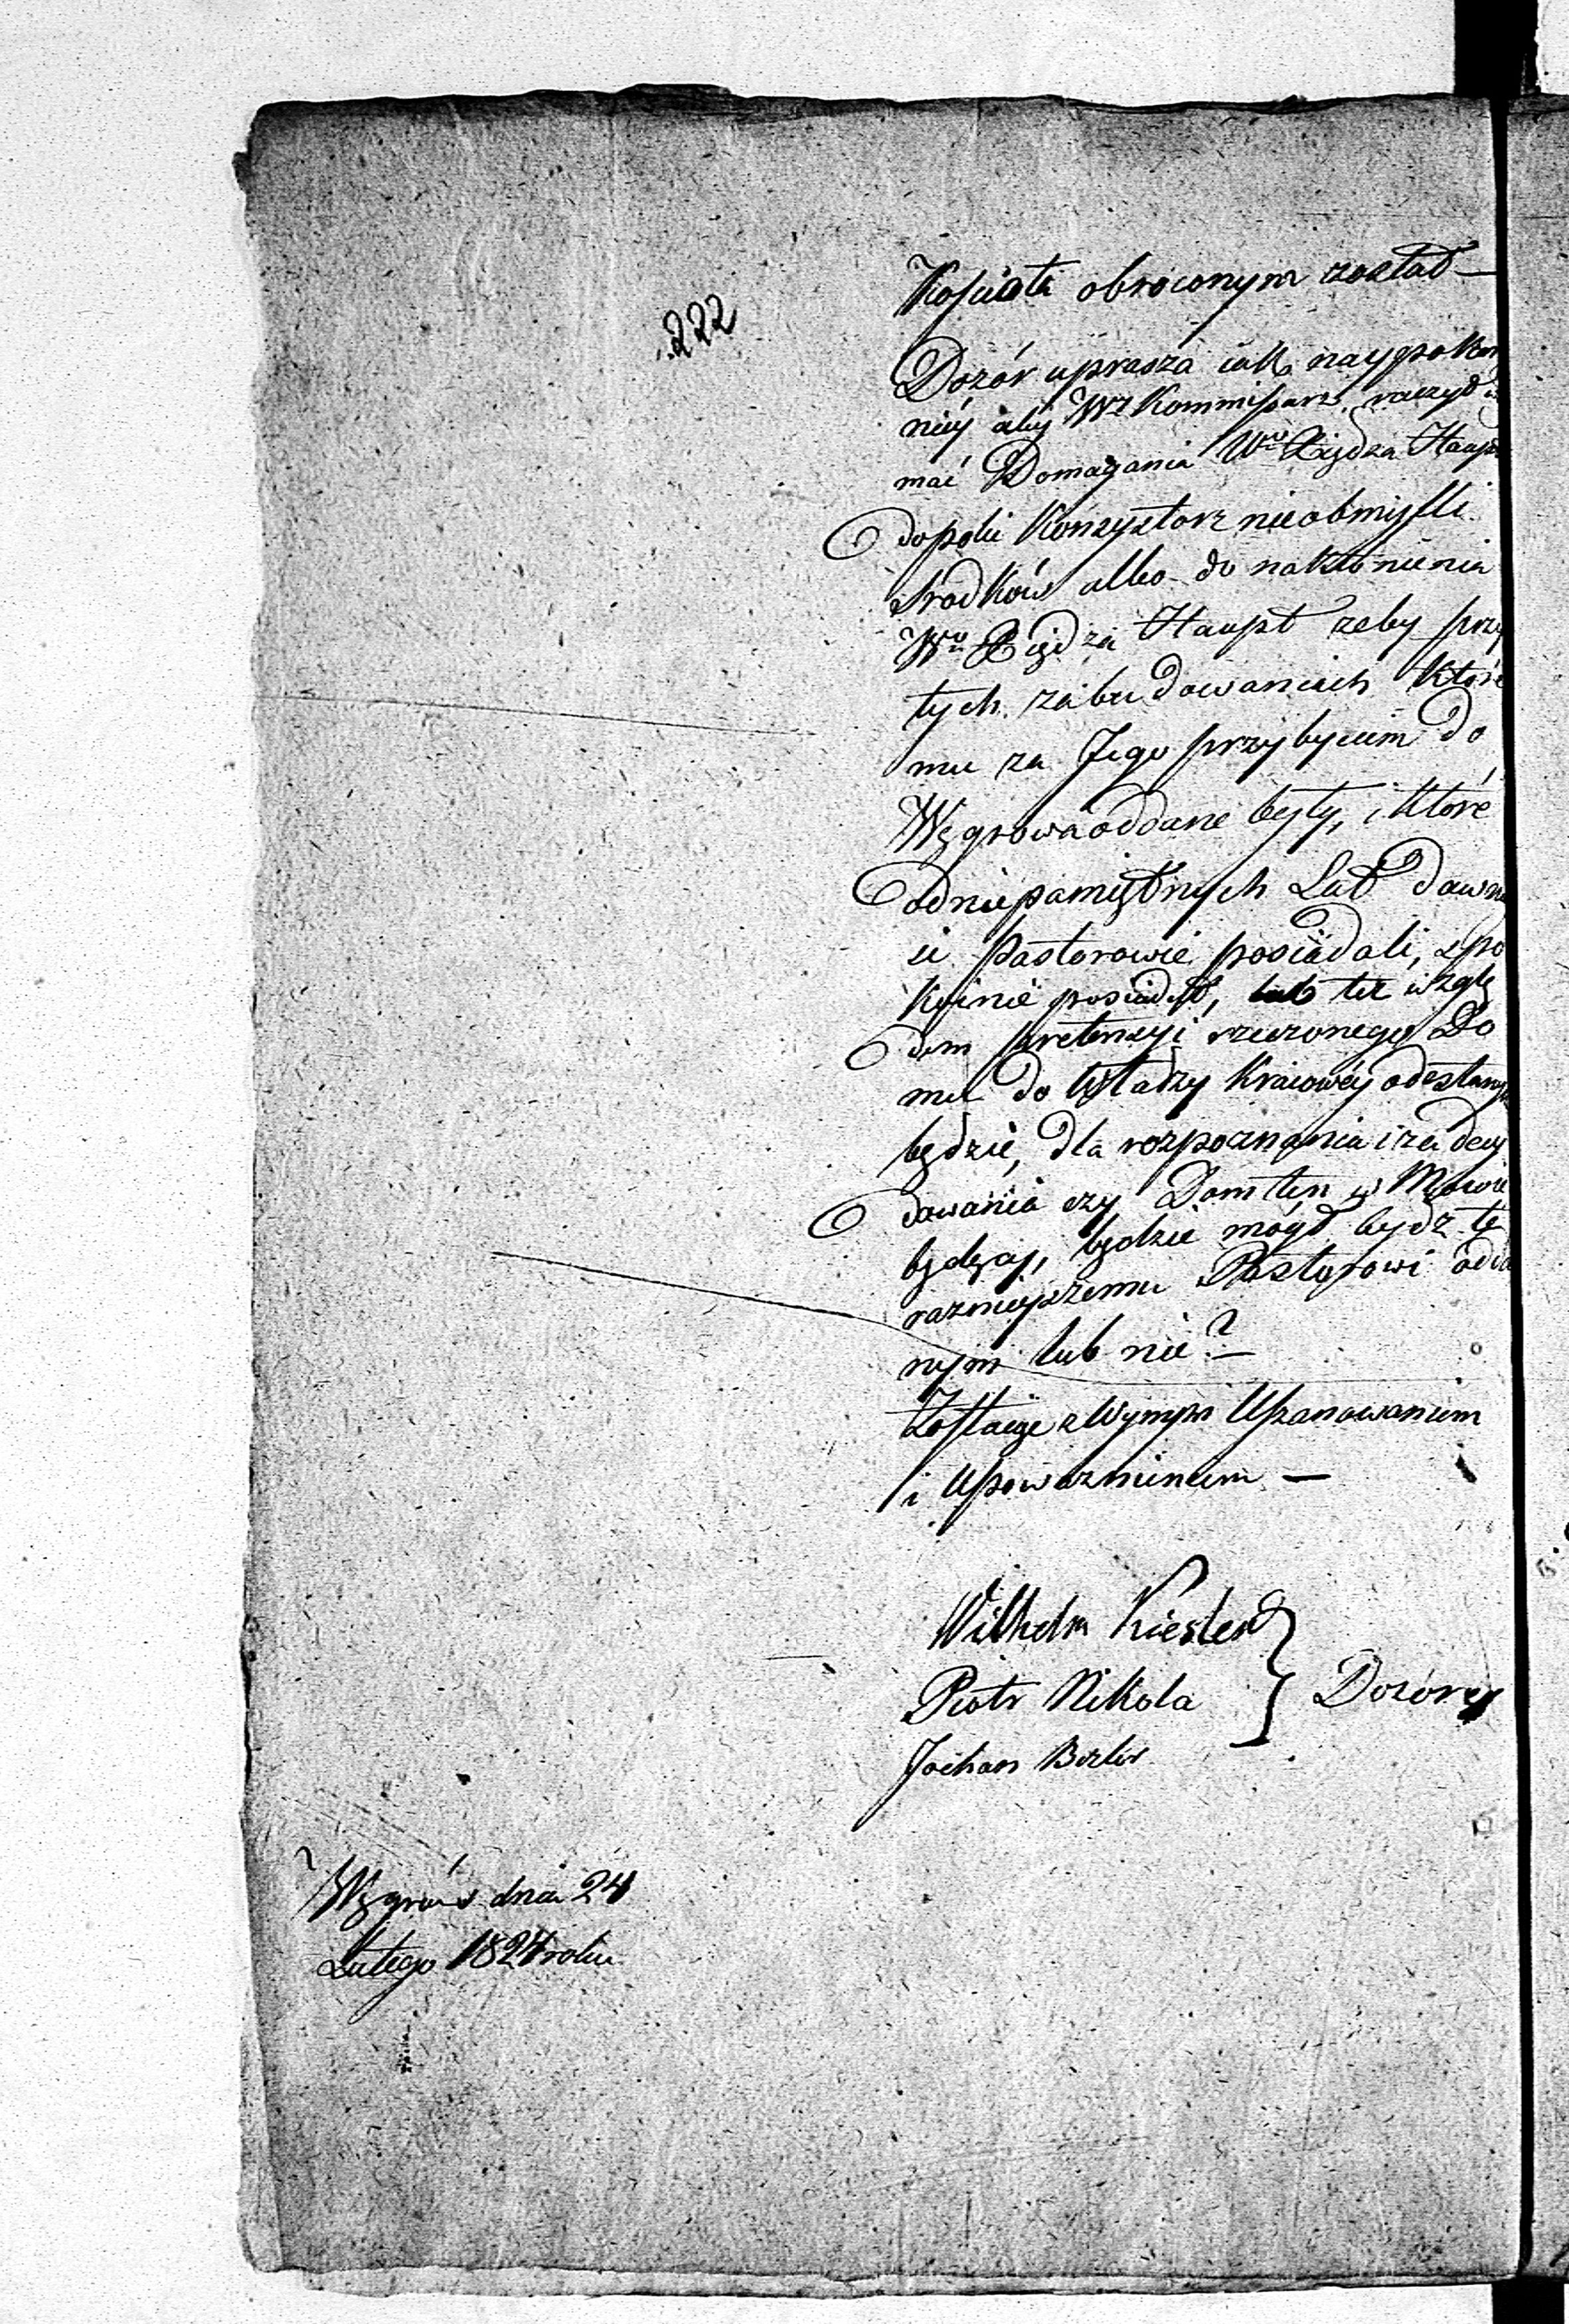 222
Kościoła obroconym został —
Dozór uprasza iak naypokor
niéy aby WJ Kommissarz raczył
mać Domagania Wgo Xiędza Haupt
dopóki Konsystorz nieobmyśli
środków albo do nakłonienia
Wgo Xiędza Haupt zeby przy
tych zabudowaniach które
mu za Jego przybyciem do
Węgrowa oddane były, i które
odniepamiętnych Lat dawni
ei Pastorowie posiadali, spo
koinie posiadał, lub też wzglę
dem pretensyi rzeczonego Do
mu do Władzy Kraiowéy odesłanym
będzie, dla rozpoznania i zadecy
dowania czy Dom ten w Mowie
będący, będzie mógł bydz te
raznieyszemu Pastorowi odda
nym lub nie? —
Zostaie z Winnym Uszanowaniem
i Upoważnieniem —
Wilhelm Kiesler
Piotr Nikola } Dozórcy
Johan
Węgrów dnia 24
Lutego 1824 roku